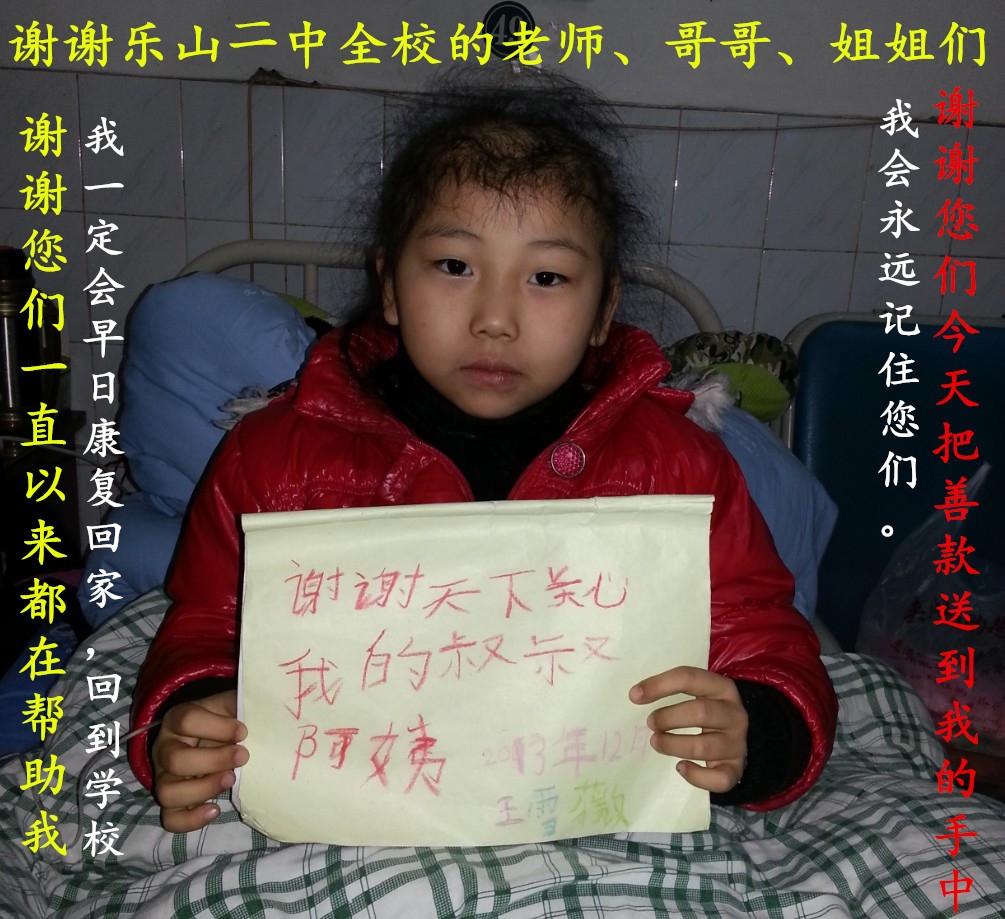 49
谢谢乐山二中全校的老师、哥哥、姐姐们
谢谢您们一直以来都在帮助我
我一定会早日康复回家,回到学校
我会永远记住您们。
谢谢您们今天把善款送到我的手中
谢谢天下关心
我的叔叔
阿姨
2013年12月
王雪薇